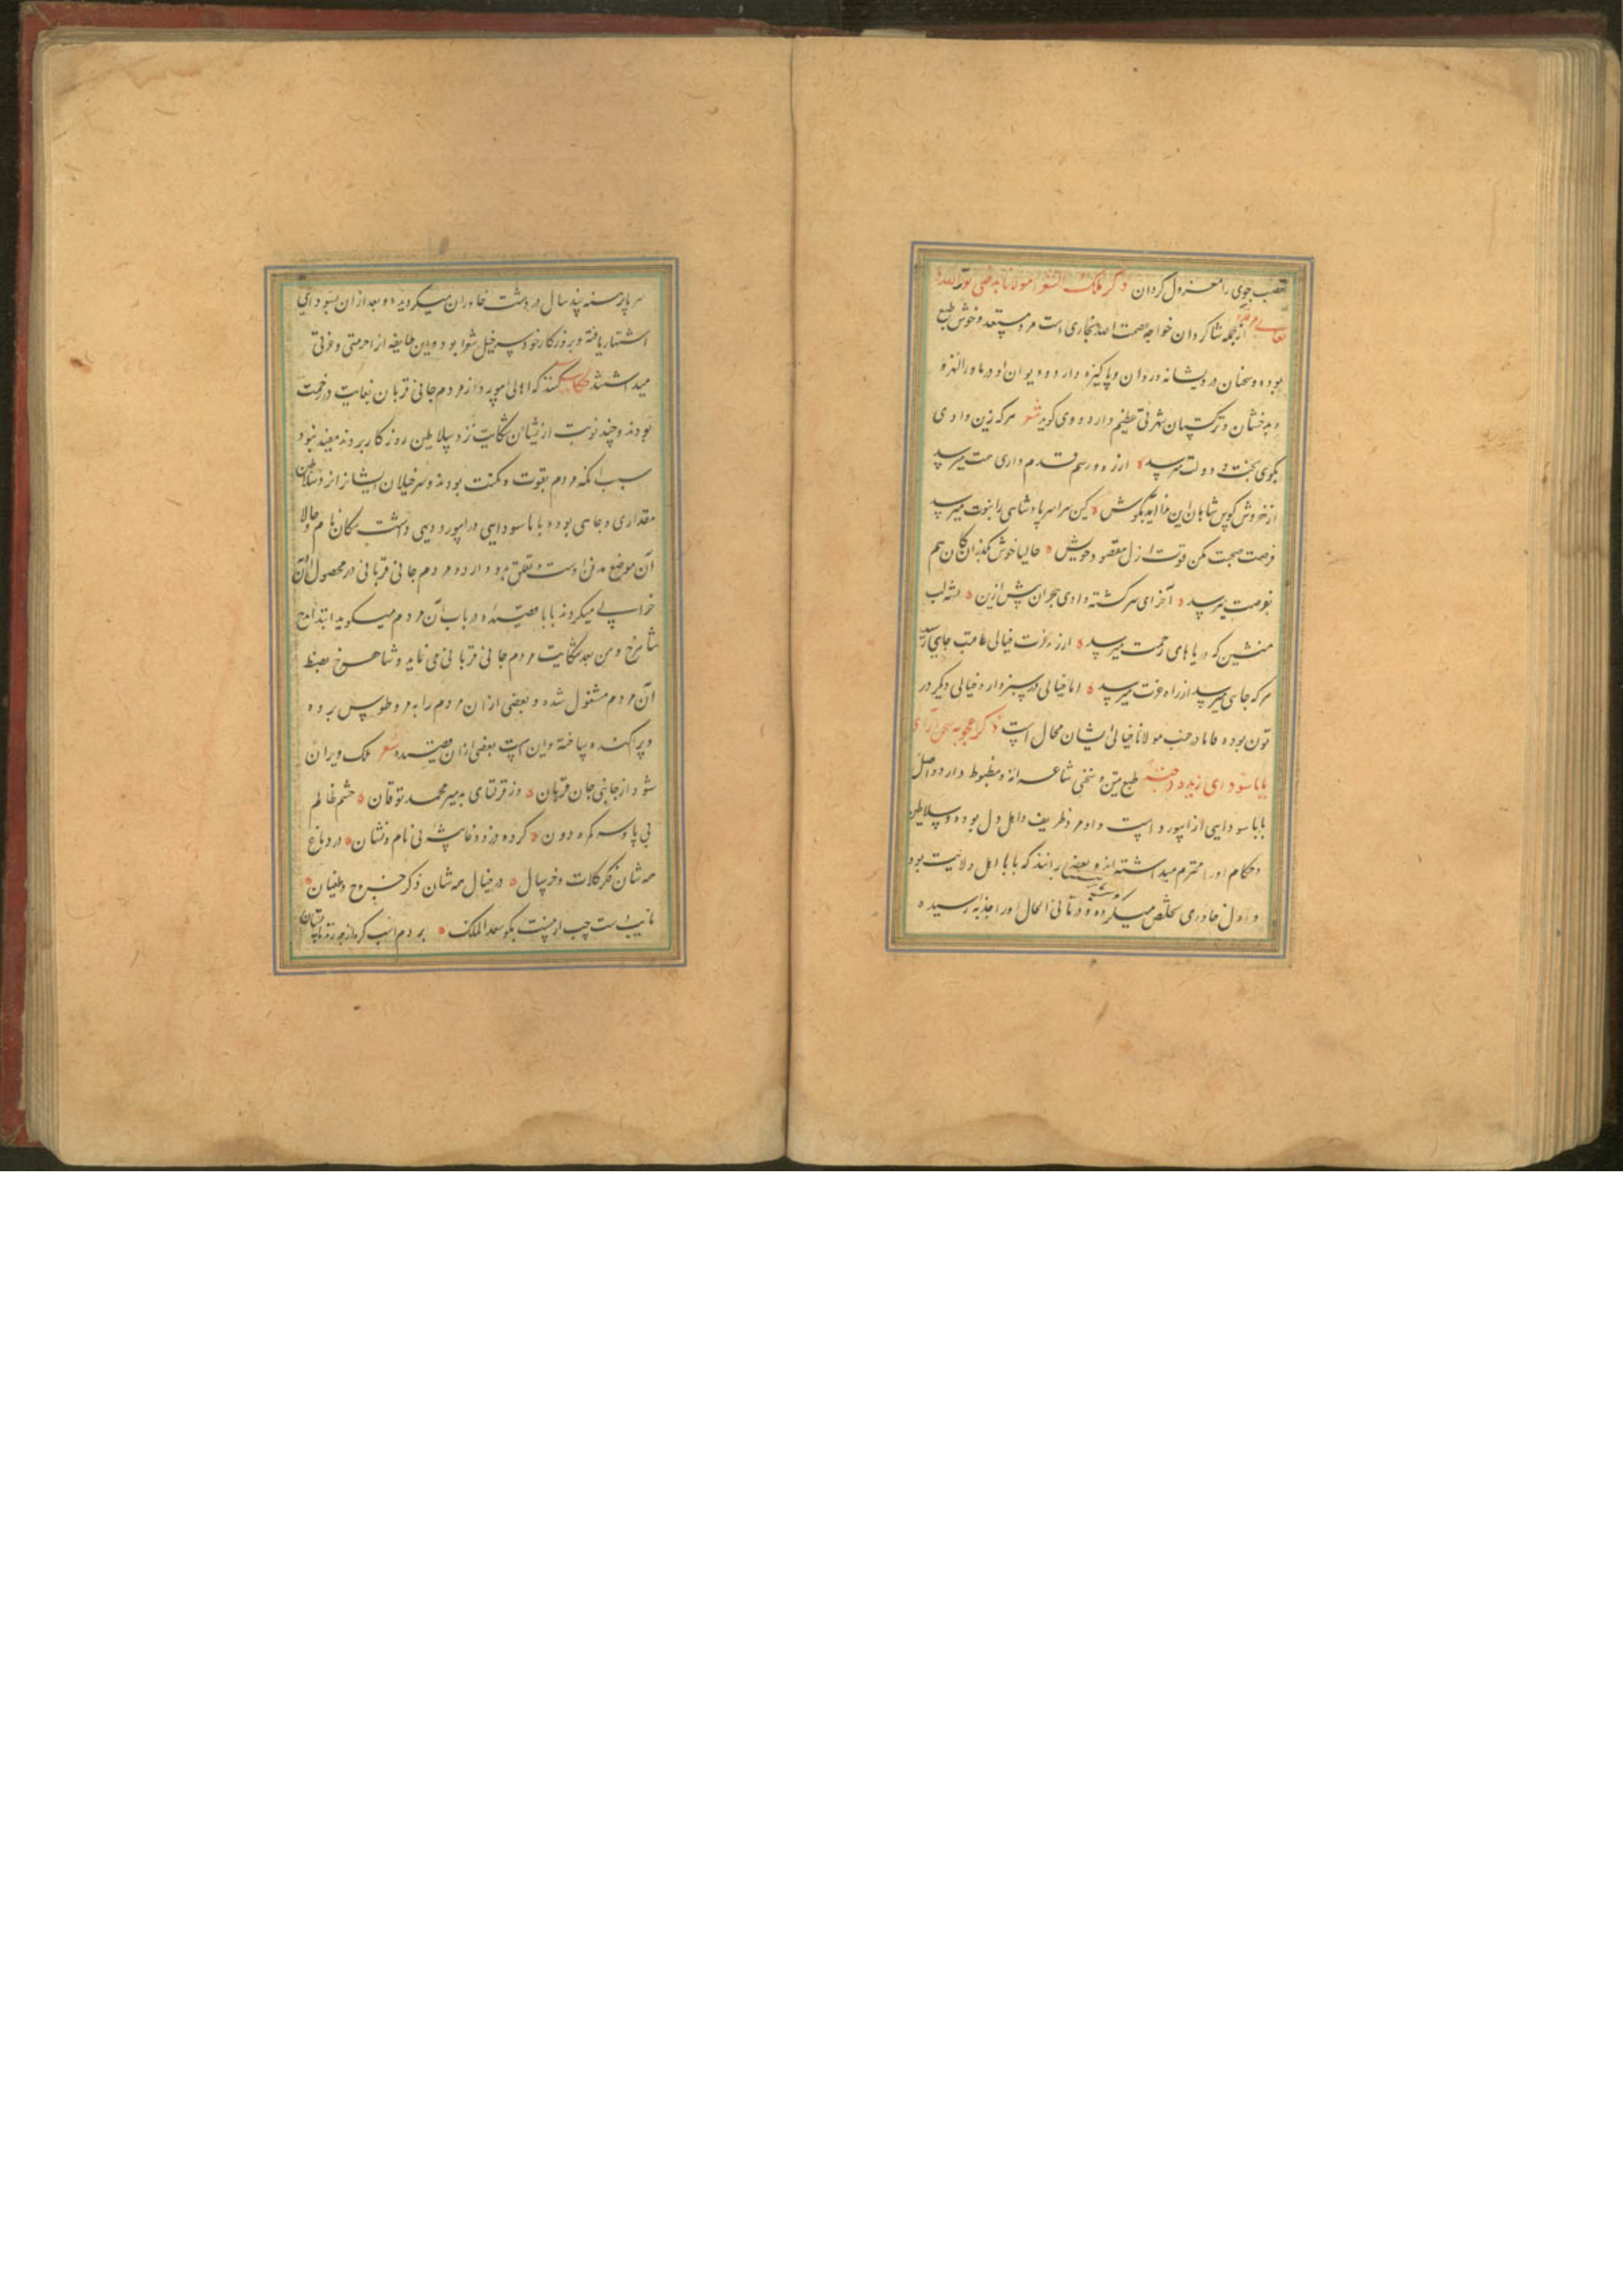 تعصب جوی را معزول کردان ذکر ملک الشعرا مولانا بدخشی نور الله
از جمله شاکردان خواجه عصمت الله بخاری است مرد مستعد و خوش طبع
بوده و سخنان درویشانه در دان و پاکیزه دارد و دیوان او در ماوراالنهر و
و بدخشان و ترکستان شهرتی عظیم دارد و وی کوید شعر هرکه زین وادی
بکوی بخت و دولت میرسد ارزه و رسم قدم داری مت میرسد
از خروش کوس شاهان این ندا آید بکوش کین سراسر پادشاهی را بنوبت میرسد
فرصت صحبت مکن فوت ار زل مقصود خویش حالیا خوش بکذران کان هم
بفرصت میرسد آخر ای سرکشته وادی هجران پیش ازین تشنه لب
منشین که دریاهای رحمت میرسد ارزه عزت خیالی عاقبت جایی رسید
هرکه جایی میرسد از راه عزت میرسد اما خیالی در سبزوار و خیالی دیکر در
تون بوده فاما در جنب مولانا خیالی ایشان محال است ذکر اعجوبه سخن آرای
بابا سودای زیده درجته طبع متین و سخنی شاعرانه و مضبوط دارد و اصل
بابا سودایی از ابیورد است و او مرد ظریف و اهل دل بوده و سلاطین
و حکام او را محترم میداشته اند و بعضی برانند که بابا اهل ولایت بود
و اول خاوری تخلص میکرده و در ثانی الحال او را جذبه رسیده
سر پا برهنه چند سال در دشت خاوران میکردیده و بعد از ان بسودای
اشتهار یافته و بروزکار خود سرخیل شعرا بود و این طایفه از احرمتی و عزتی
میداشتند حکایت کنند که اهالی ابیورد از مردم جانی قربان بغایت در زحمت
بودند و چند نوبت ازیشان شکایت نزد سلاطین روزکار بردند مفید نبود
سبب انکه مردم بقوت و مکنت بودند و سرخیلان ایشانرا نزد سلاطین
مقداری و جاهی بود و بابا سودایی در ابیورد دیهی داشت سکان نام و حالا
آن موضع مدفن اوست و تعلق بدو دارد و مردم جانی قربانی در محصول او آن
خرابی میکردند بابا قصیده در باب آن مردم میکوید ابتدا مدح
شاهرخ و من بعد شکایت مردم جانی قربانی می نماید و شاهرخ بضبط
آن مردم مشغول شده و بعضی از ان مردم را به مرو طوس برده
و پراکنده ساخته و این است بعضی از ان قصیده شعر ملک ویران
شود از جانی جان قربان وز قرلتای بد میر محمد توقان حشم ظالم
بی پا و سر کمره دون کرده دزد و غاشه بی نام و نشان در دماغ
همه شان فکر کلات و خر سال در خیال همه شان ذکر خروج و طغیان
نایب است چب از منت بکو سعد الملک